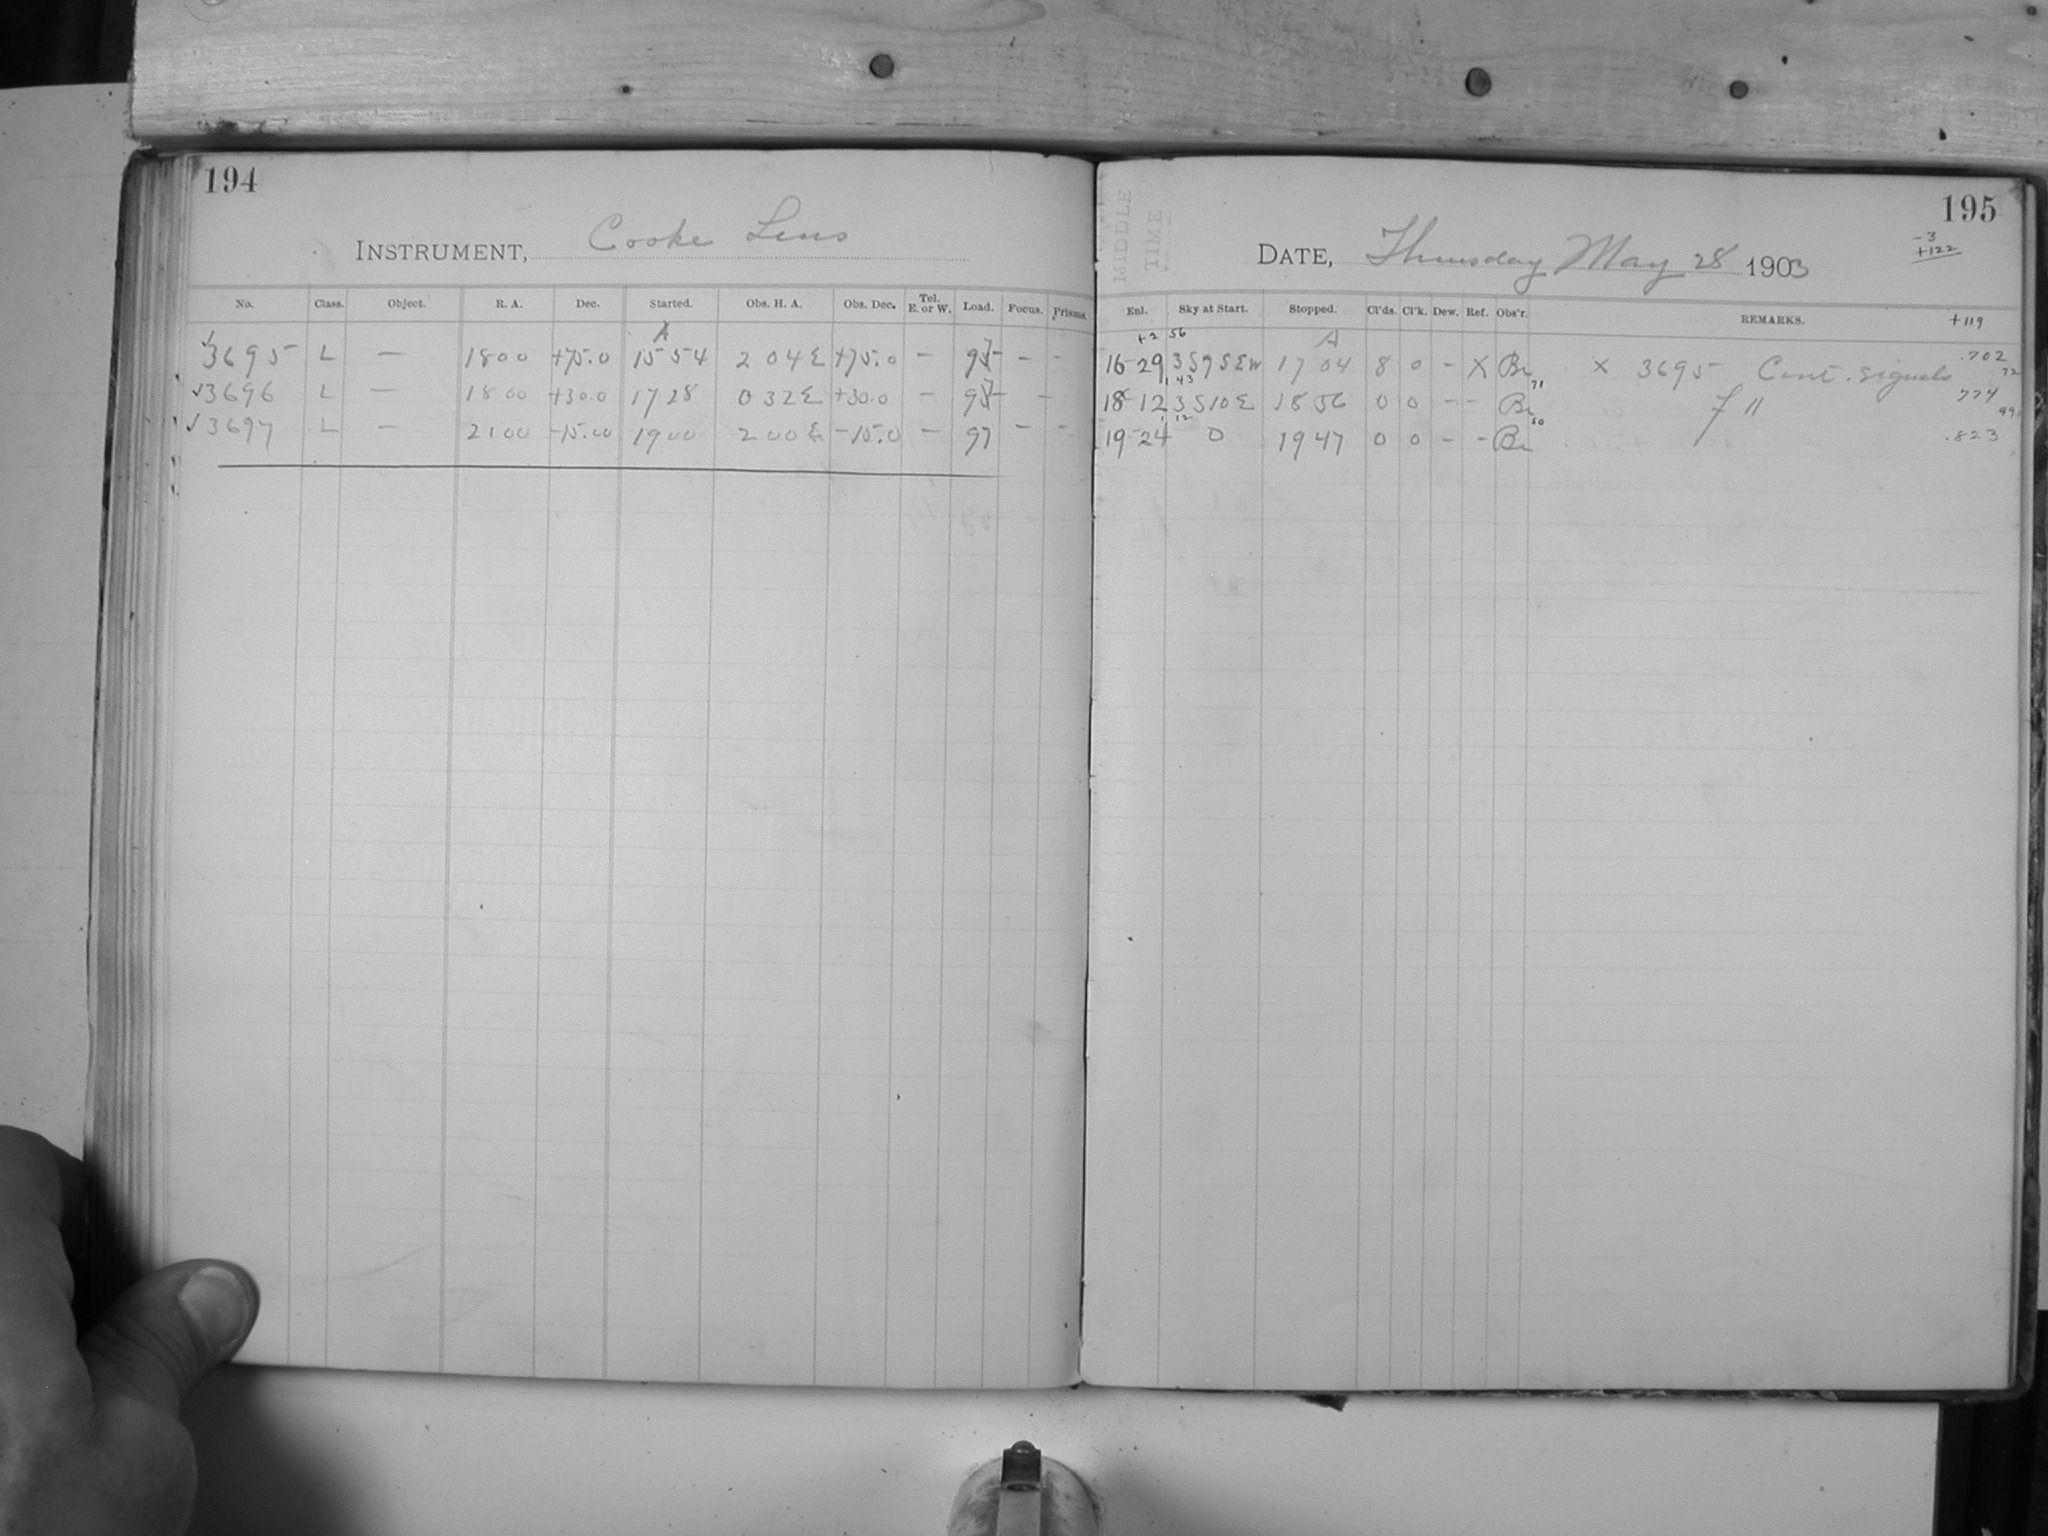 194
INSTRUMENT, Cooke Lens
No. Class. Object. R. A. Dec. Started. Obs. H. A. Obs. Dec. Tel. E. or W. Load. Focus. Prisms.
A
√ 3695 L — 18 00 +75.0 15 54 2 04 E +75.0 — — —
√ 3696 L — 18 00 +30.0 17 28 0 32 E +30.0 — —
√ 3697 L — 21 00 -15.00 19 00 2 00 E -15.0 — 97 — —
195
MIDDLE TIME
DATE, Thursday May 28 1903
-3
+122
Enl. Sky at Start. Stopped. Cl'ds. Cl'k. Dew. Ref. Obs'r. REMARKS. +119
+2 56 A
16-29 3 S 7 S E W 17 04 8 0 - X Br × 3695 Cont. signals .702
1 43 71 72
18-12 3 S 10 E 18 56 0 0 - - Br 7 " 774
1 12 50 49
19-24 0 19 47 0 0 - - Br .823